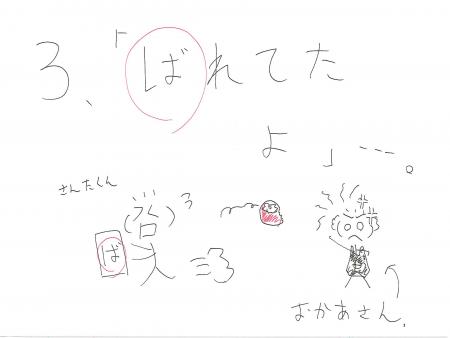 3、「ばれてた
よ」…。
さんたくん
ば
おかあさん